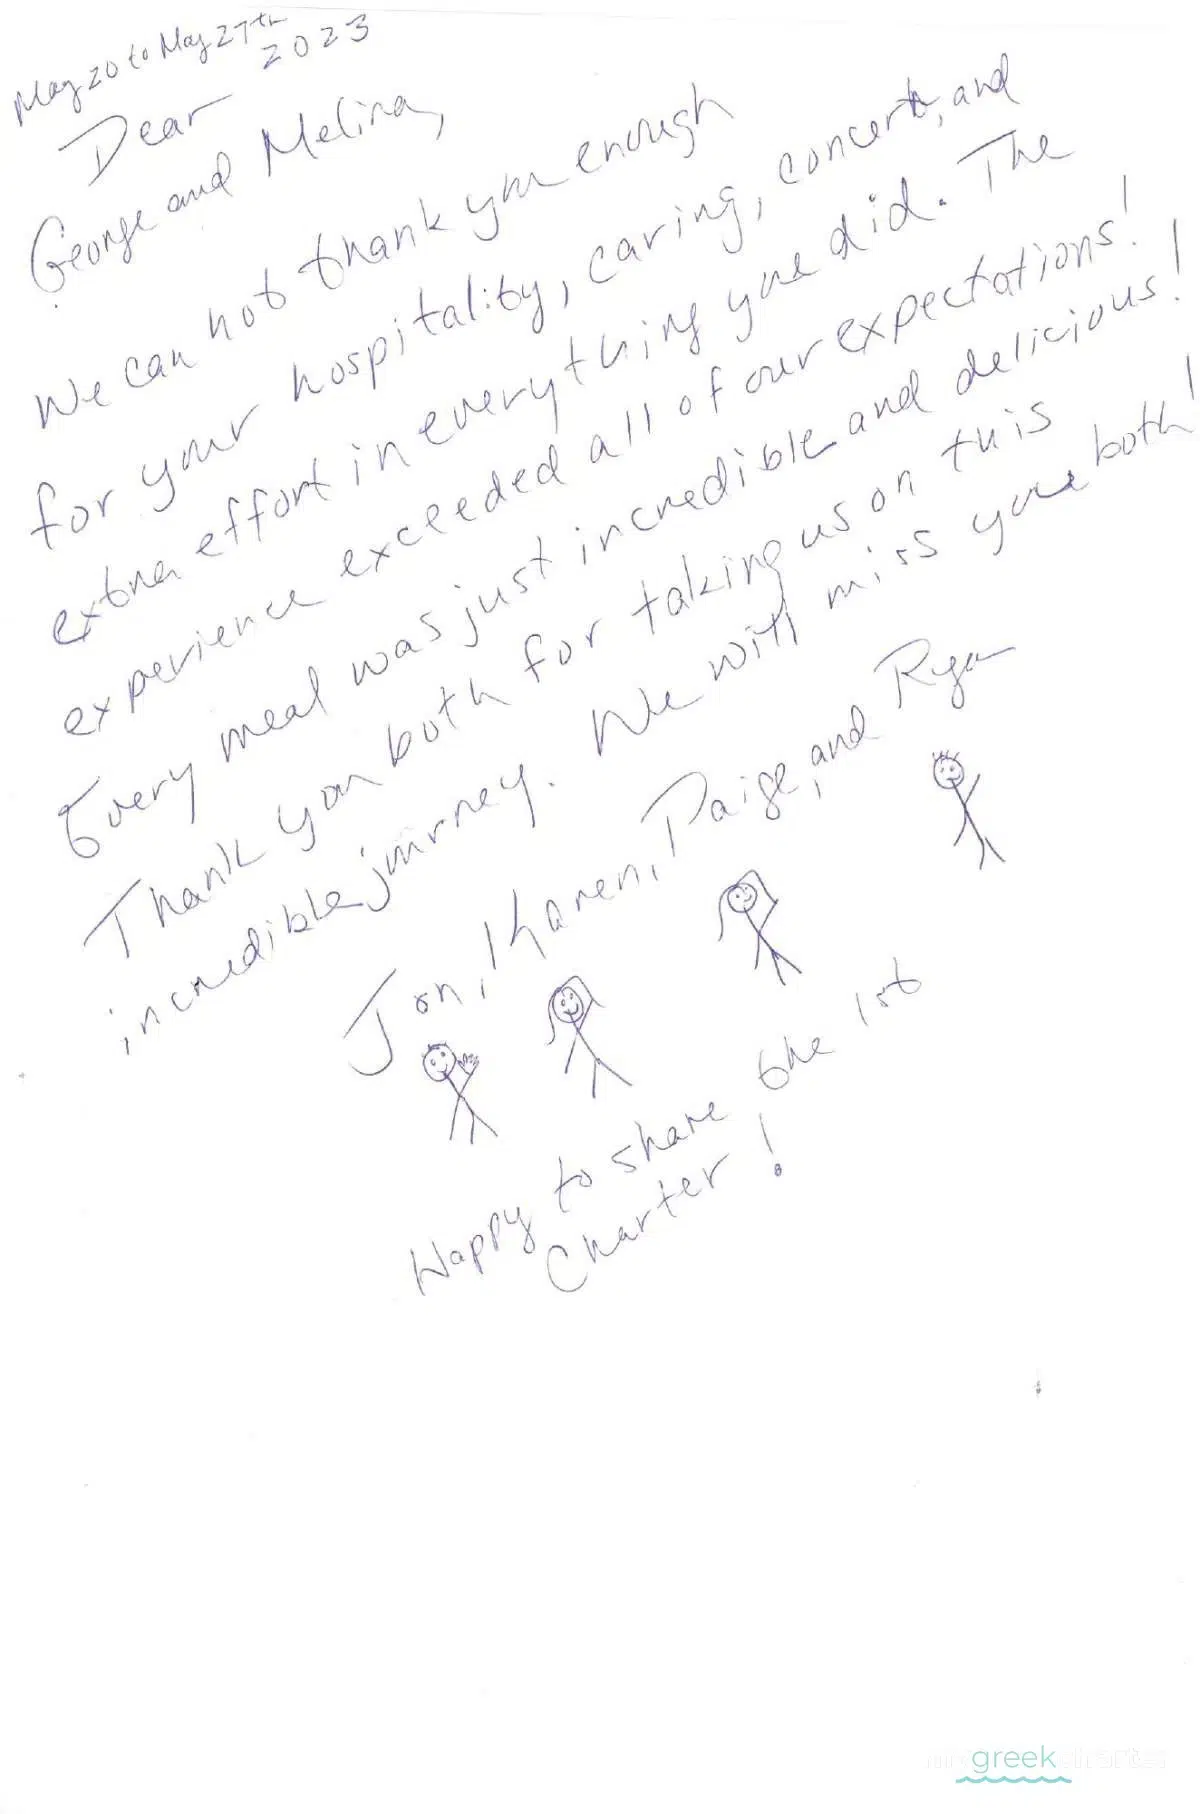 May 20 to May 27th
2023
Dear
George and Melina,
We can not thank you enough
for your hospitality, caring, concert, and
extra effort in everything you did. The
experience exceeded all of our expectations!
Every meal was just incredible and delicious!
Thank you both for taking us on this
incredible journey. We will miss you both!
Jon, Karen, Paige, and Ryan
Happy to share the 1st
Charter!
my greek charter